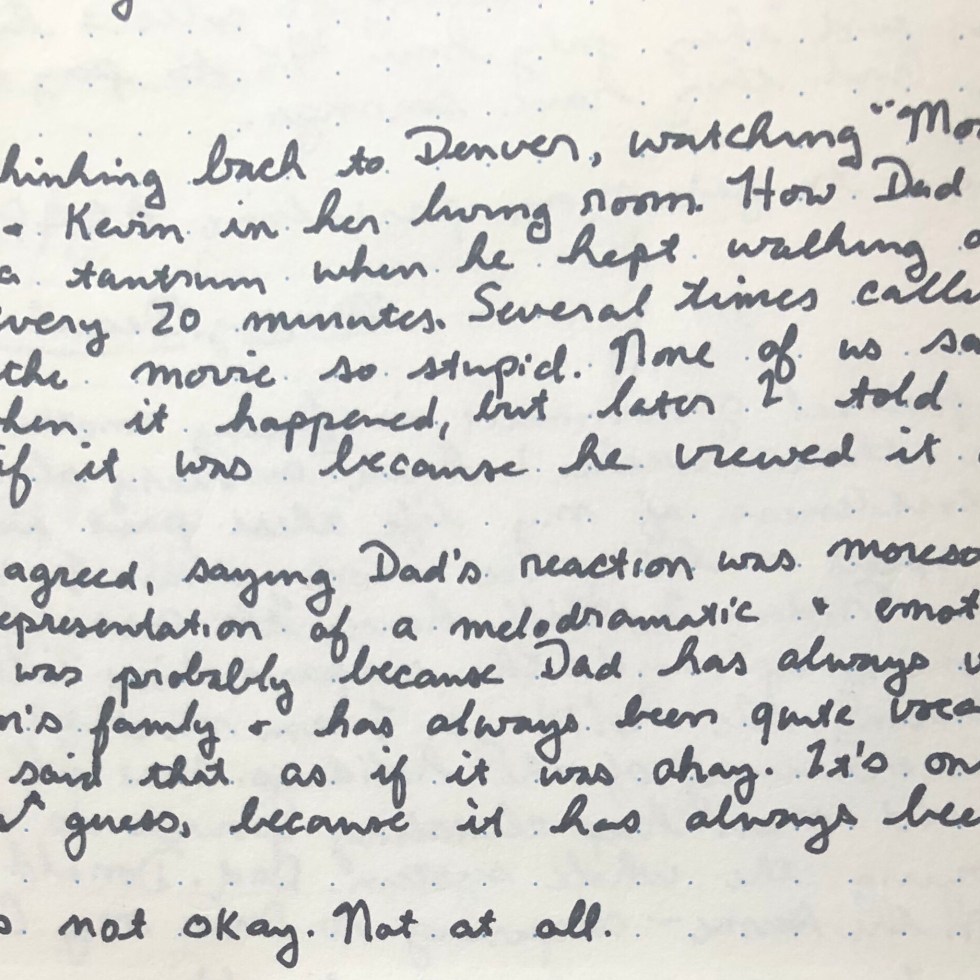 hinking back to Denver, watching "Mo
+ Kevin in her living room. How Dad
a tantrum when he kept walking
very 20 minutes. Several times calle
the movie so stupid. None of us sa
hen it happened, but later I told
if it was because he viewed it
agreed, saying Dad's reaction was moreso
epresentation of a melodramatic + emot
was probably because Dad has always
m's family + has always been quite voca
said that as if it was okay. It's on
guess, because it has always bee
s not okay. Not at all.